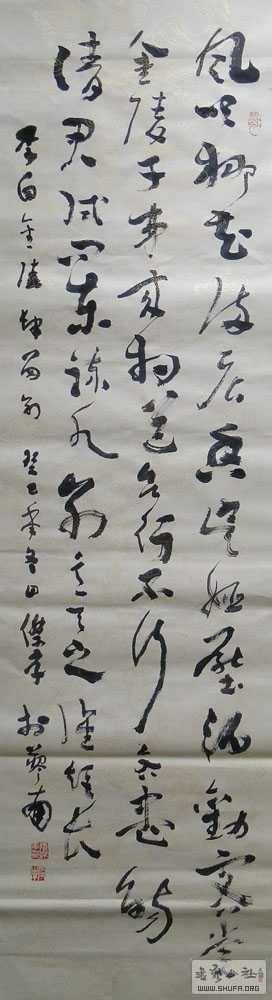 風吹柳花滿店香吳姬壓酒勸客嘗
金陵子弟來相送欲行不行各盡觴
請君試問東流水別意與之誰短長
李白金陵酒肆留別 癸巳年冬日傑 於 南
书艺公社
WWW.SHUFA.ORG